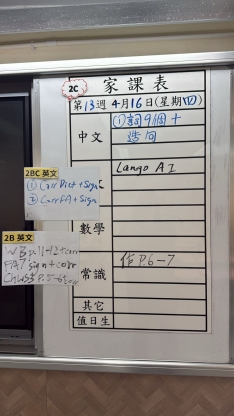 2C 家課表
第13週 4月16日(星期四)
中文
①詞9個+
造句
Lango AI
2BC 英文
① Corr Dict + Sign
② Corr FA + Sign
數學
2B 英文
WB p.11-12+corr
sign + corr
常識
作 P.6-7
其它
值日生